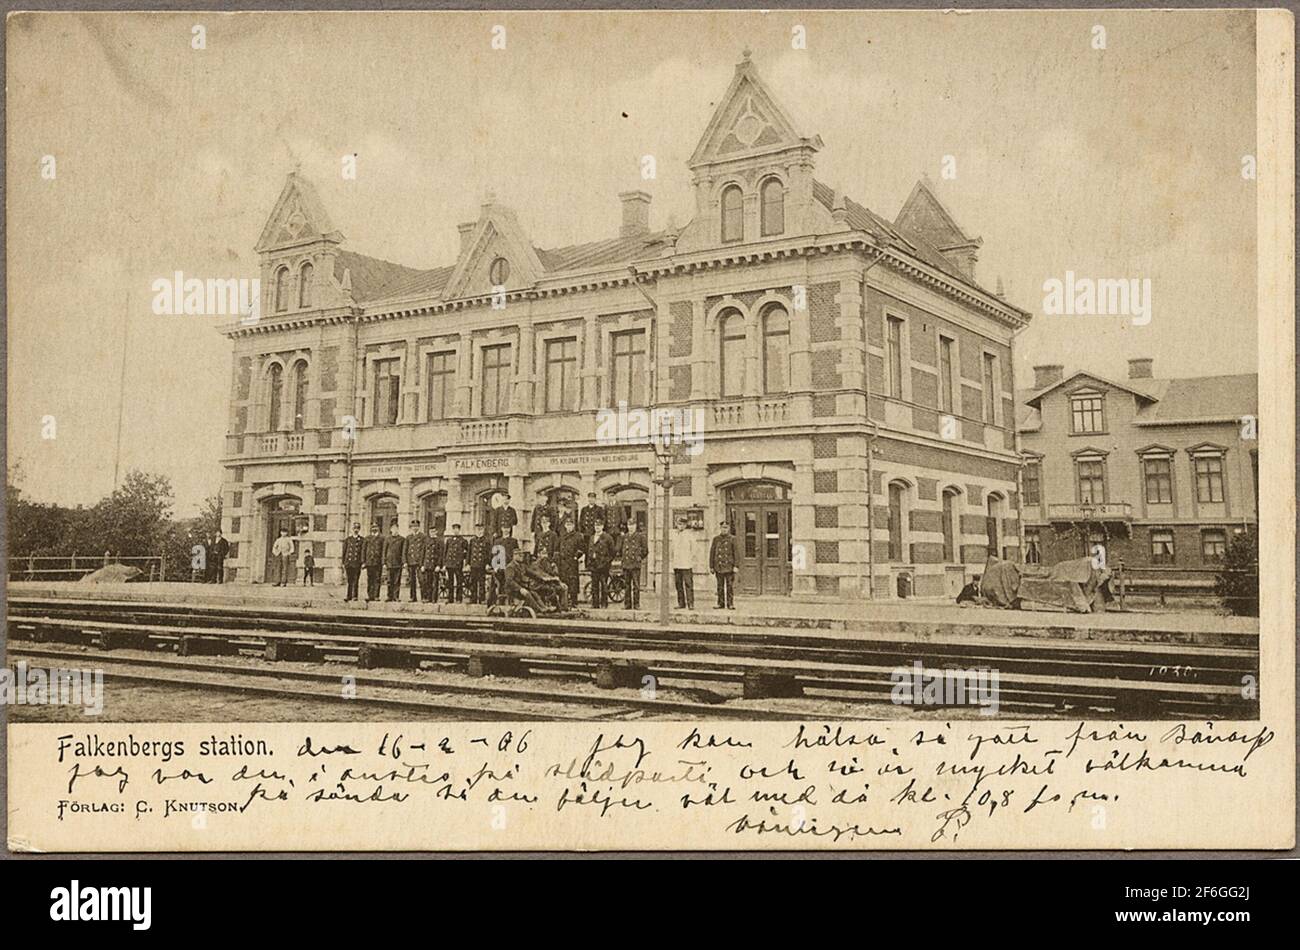 FALKENBERG.
1030.
Falkenbergs station. den 16-2-06 jag kan hälsa så gott från
jag var den i onsdes på slädparti och ni är mycket välkomna
på söndag så du följer väl med då kl. 10,8 fo m.
FÖRLAG: C. KNUTSON.
Vänligen
alamy
Image ID: 2F6GG2J
www.alamy.com